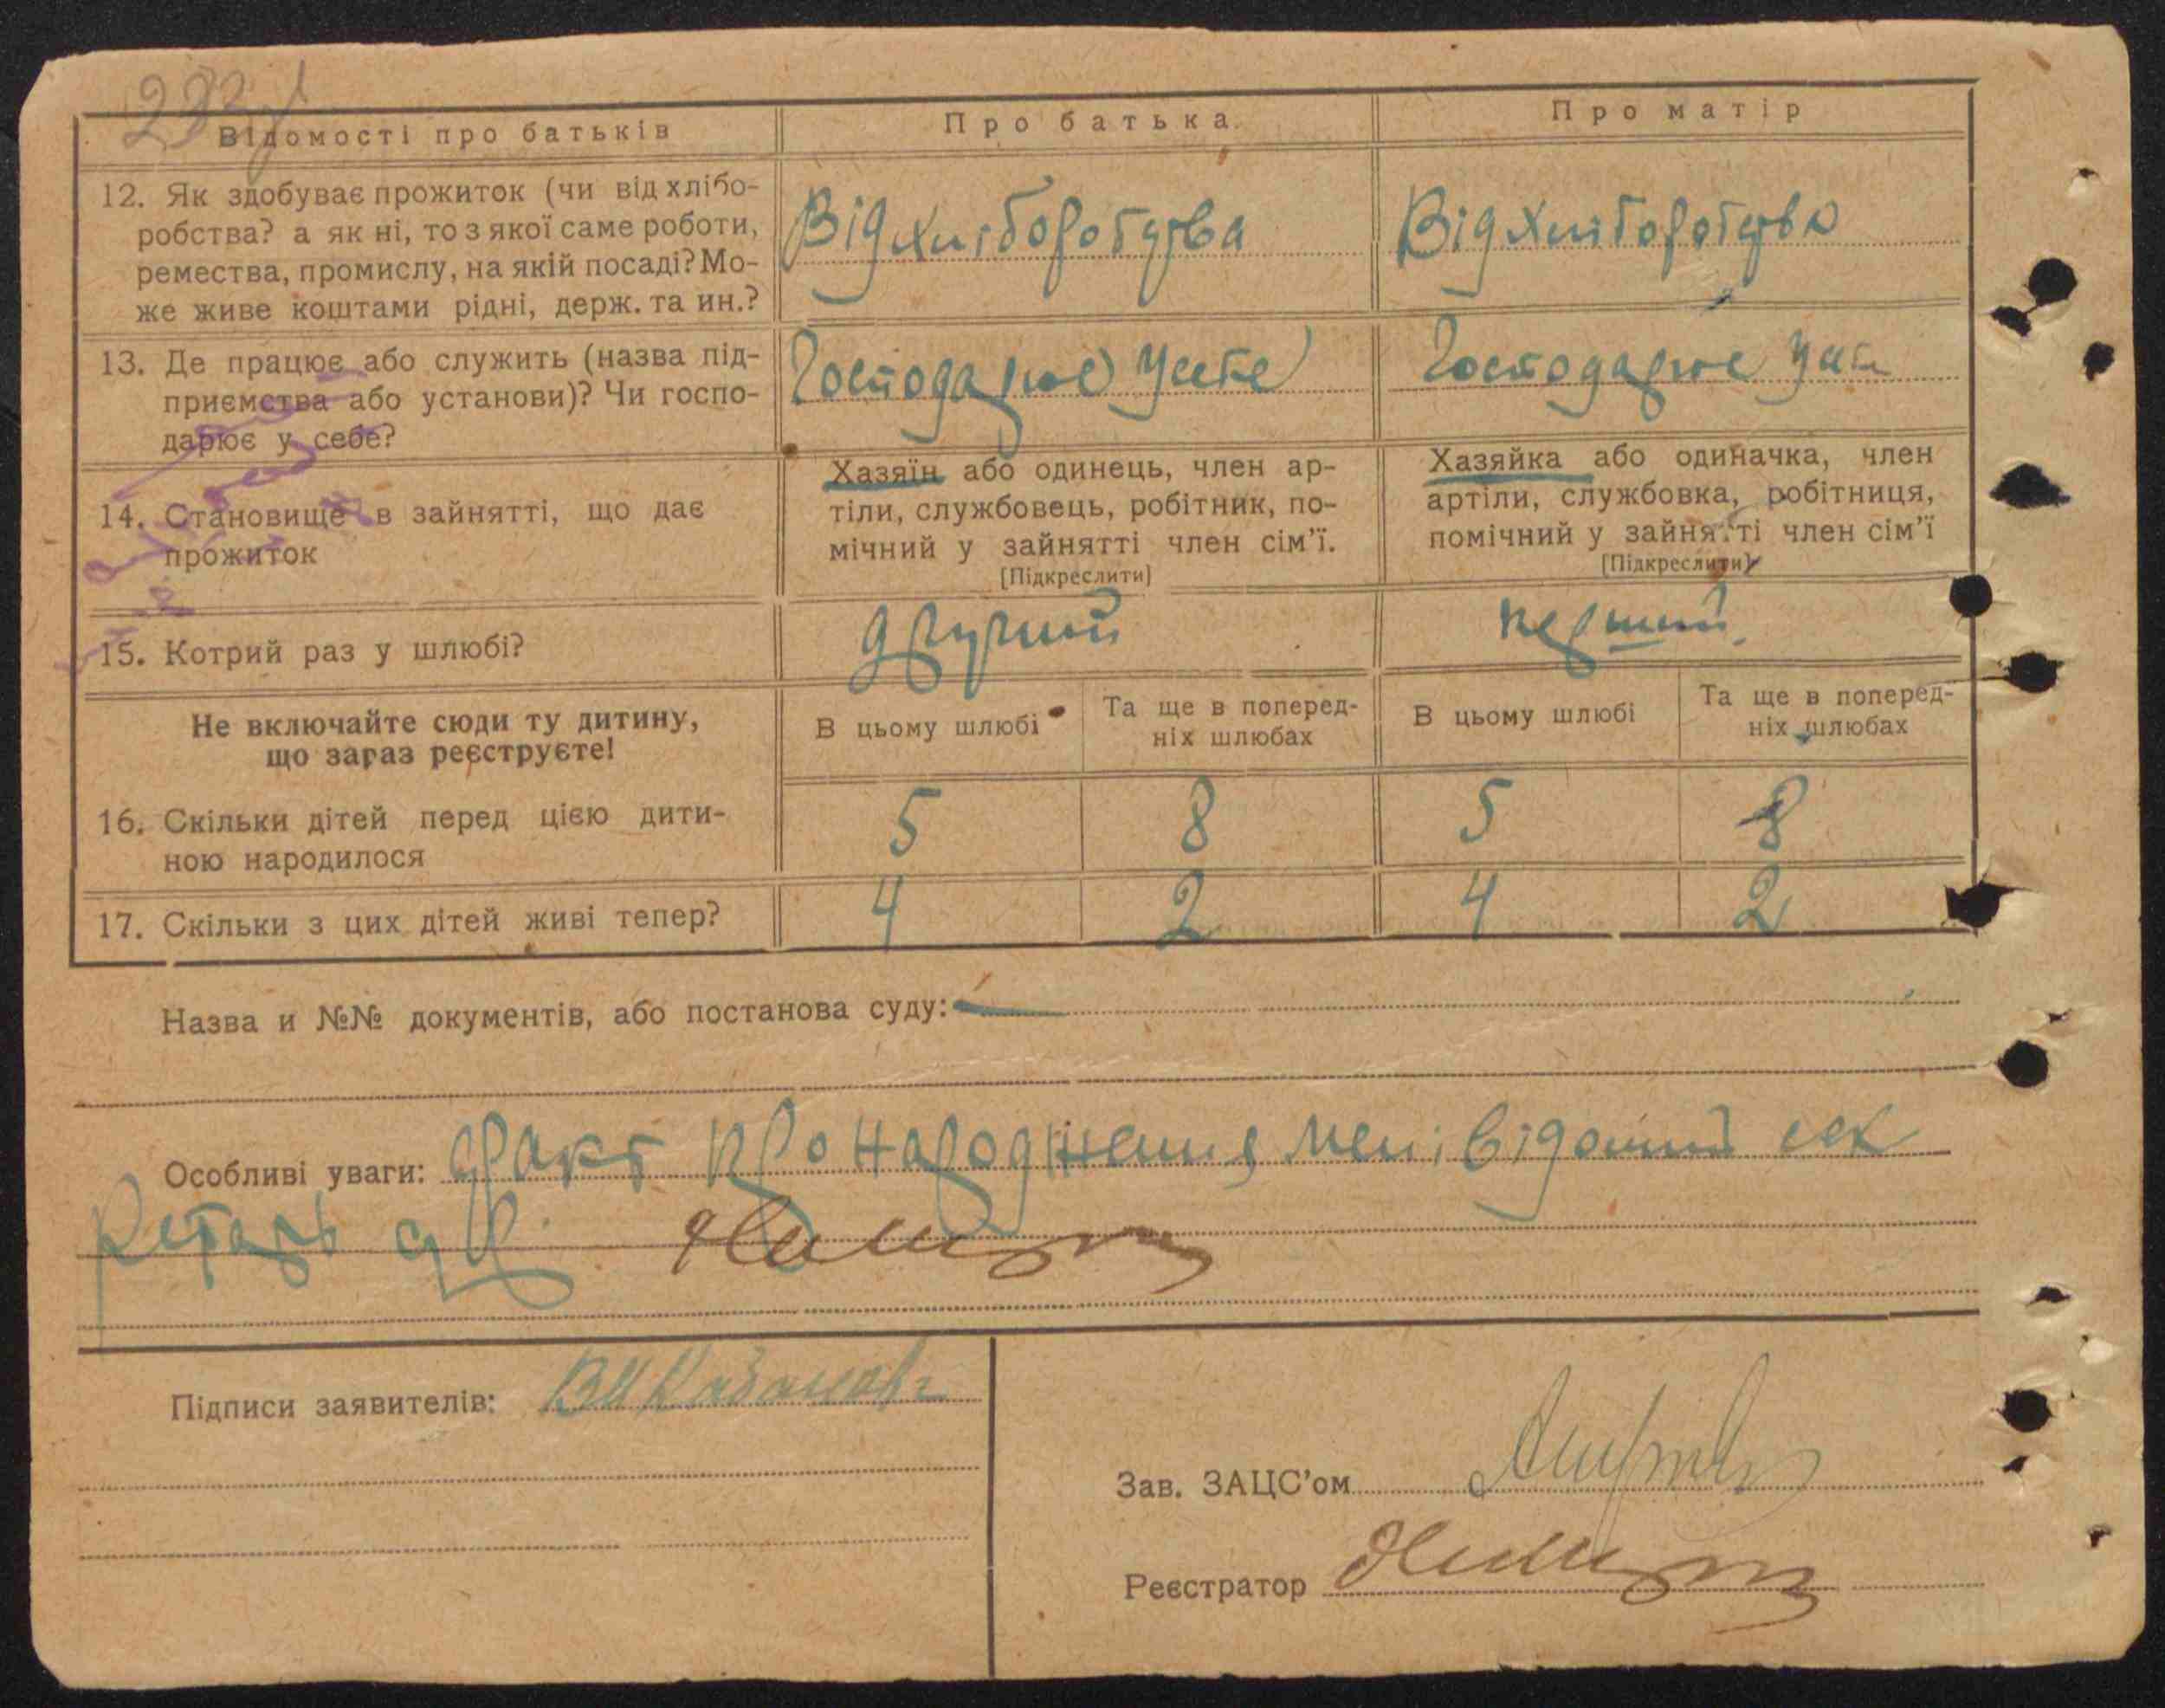 Відомості про батьків
Про батька
Про матір
12. Як здобуває прожиток (чи від хлібо-
робства? а як ні, то з якої саме роботи,
ремества, промислу, на якій посаді? Мо-
же живе коштами рідні, держ. та ин.?
Від хліборобства
Від хліборобства
13. Де працює або служить (назва під-
приємства або установи)? Чи госпо-
дарює у себе?
Господарює у себе
Господарює у себе
14. Становище в зайнятті, що дає
прожиток
Хазяїн або одинець, член ар-
тіли, службовець, робітник, по-
мічний у зайнятті член сім'ї.
[Підкреслити]
Хазяйка або одиначка, член
артіли, службовка, робітниця,
помічний у зайнятті член сім'ї
[Підкреслити]
15. Котрий раз у шлюбі?
другий
перший
Не включайте сюди ту дитину,
що зараз реєструєте!
В цьому шлюбі
Та ще в поперед-
ніх шлюбах
В цьому шлюбі
Та ще в поперед-
ніх шлюбах
16. Скільки дітей перед цією дити-
ною народилося
5 8 5 8
17. Скільки з цих дітей живі тепер?
4 2 4 2
Назва и №№ документів, або постанова суду: —
Особливі уваги: факт про народження мені відомий сек
ретарь
Підписи заявителів:
Зав. ЗАЦС'ом
Реєстратор